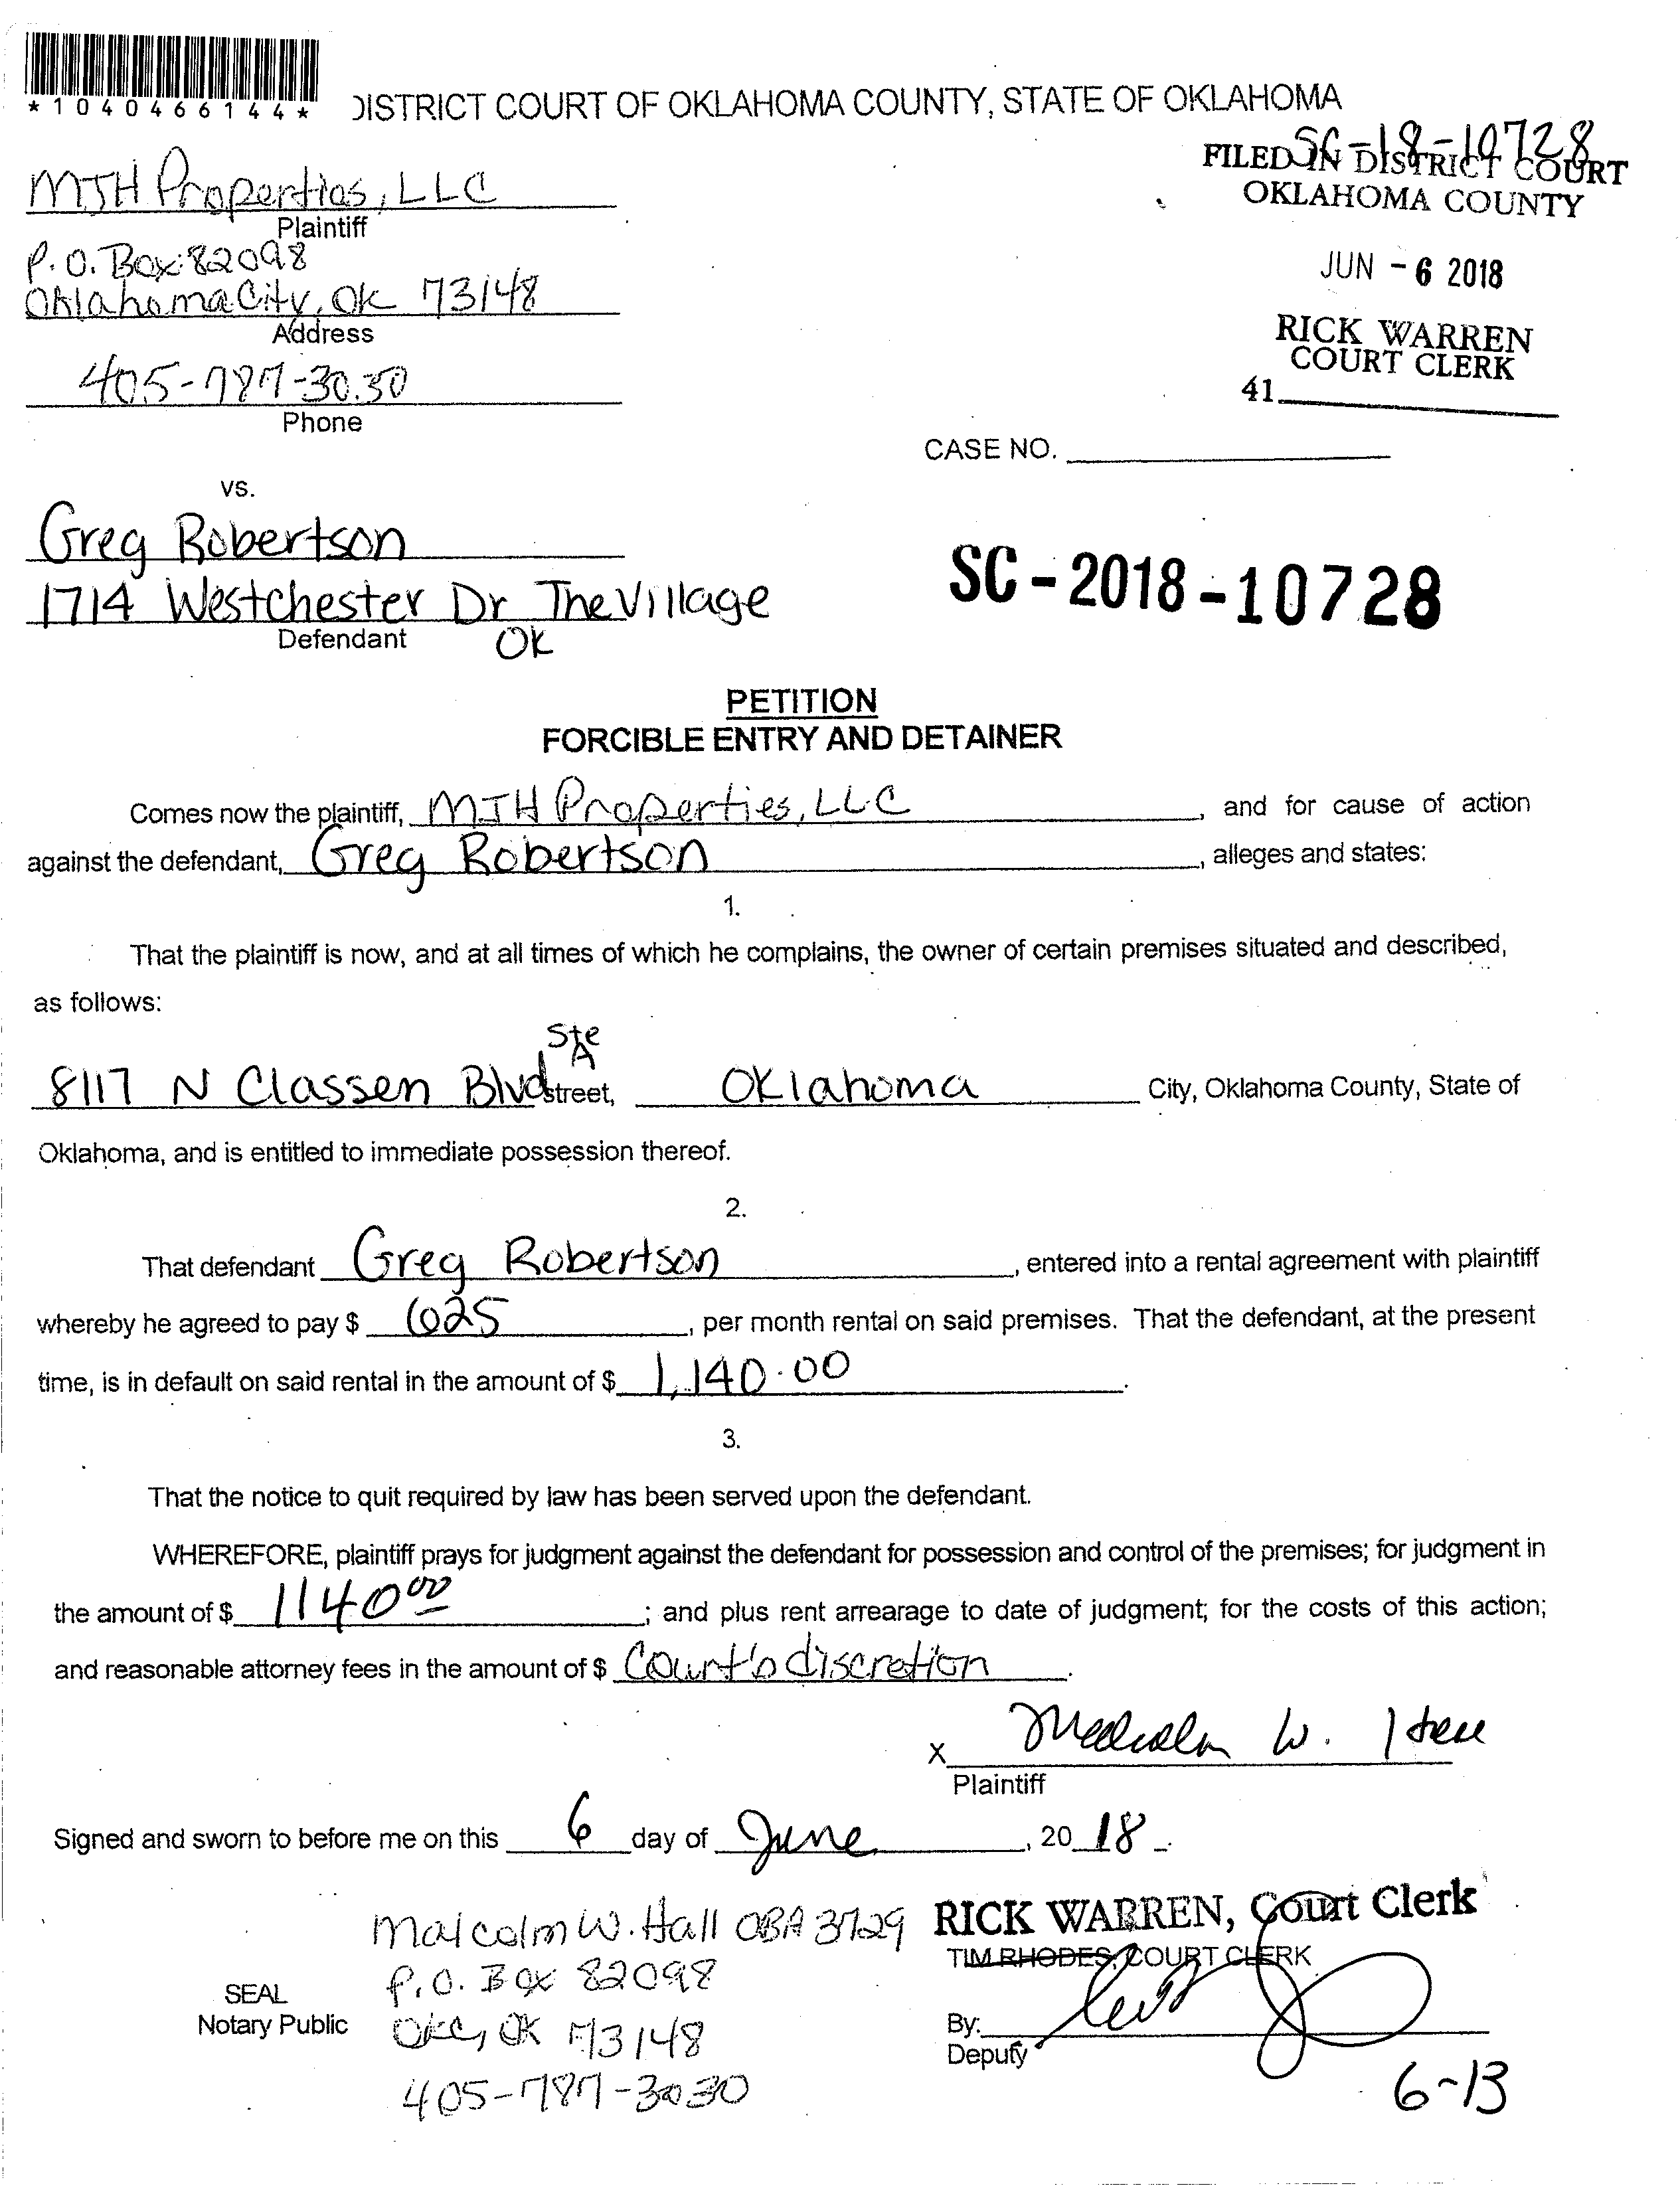 *1040466144*
DISTRICT COURT OF OKLAHOMA COUNTY, STATE OF OKLAHOMA
SC-18-10728
FILED IN DISTRICT COURT
OKLAHOMA COUNTY
JUN - 6 2018
RICK WARREN
COURT CLERK
41
MJH Properties, LLC
Plaintiff
P.O. Box 82098
Oklahoma City, OK 73148
Address
405-787-3030
Phone
CASE NO.
vs.
Greg Robertson
1714 Westchester Dr The Village
Defendant OK
SC-2018-10728
PETITION
FORCIBLE ENTRY AND DETAINER
Comes now the plaintiff, MJH Properties, LLC, and for cause of action
against the defendant, Greg Robertson, alleges and states:
1.
That the plaintiff is now, and at all times of which he complains, the owner of certain premises situated and described,
as follows:
Ste
A
8117 N Classen Blvd street, Oklahoma City, Oklahoma County, State of
Oklahoma, and is entitled to immediate possession thereof.
2.
That defendant Greg Robertson, entered into a rental agreement with plaintiff
whereby he agreed to pay $ 625, per month rental on said premises. That the defendant, at the present
time, is in default on said rental in the amount of $ 1,140.00.
3.
That the notice to quit required by law has been served upon the defendant.
WHEREFORE, plaintiff prays for judgment against the defendant for possession and control of the premises; for judgment in
the amount of $ 1140 00; and plus rent arrearage to date of judgment; for the costs of this action;
and reasonable attorney fees in the amount of $ Court's discretion.
X Malcolm W. Hall
Plaintiff
Signed and sworn to before me on this 6 day of June, 20 18.
Malcolm W. Hall OBA 3729
P.O. Box 82098
OKC, OK 73148
405-787-3030
SEAL
Notary Public
RICK WARREN, Court Clerk
TIM RHODES, COURT CLERK
By:
Deputy
6-13